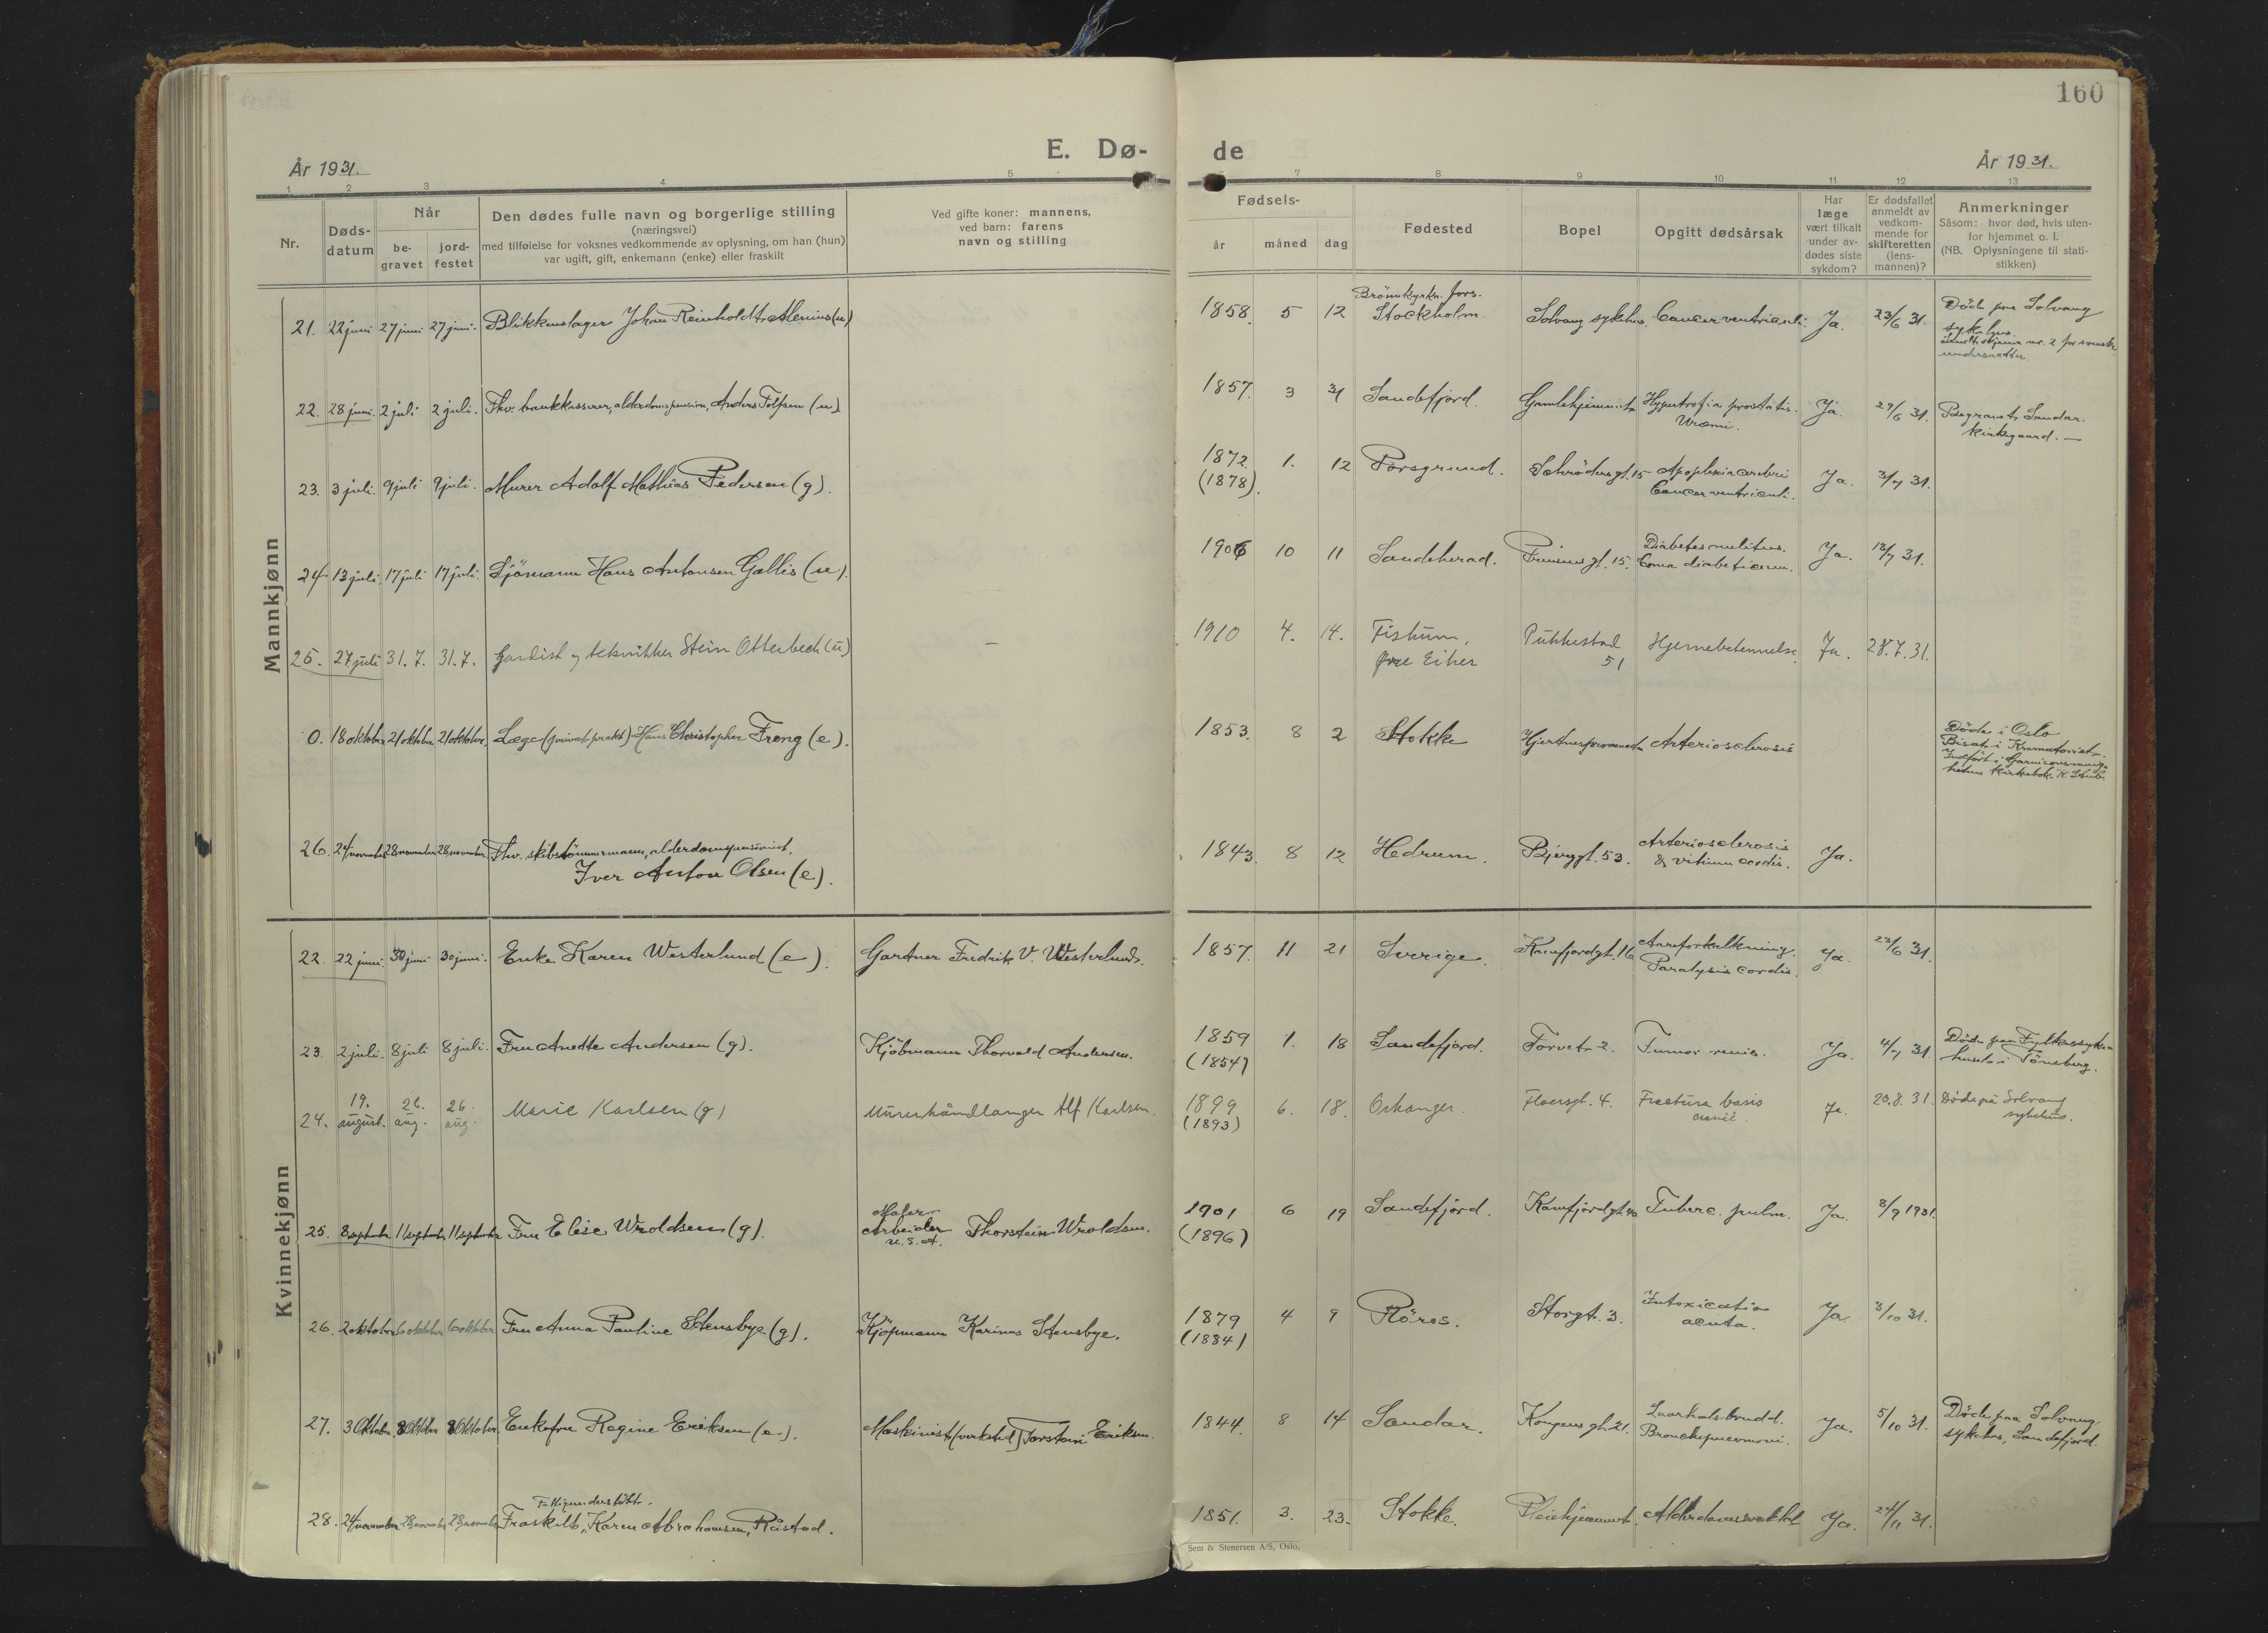 160
E. Dø-
de
År 1931.
År 1931.
1 2 3 4 5 7 8 9 10 11 12 13
Nr.
Døds-
datum
Når
be-
gravet
jord-
festet
Den dødes fulle navn og borgerlige stilling
(næringsvei)
med tilføielse for voksnes vedkommende av oplysning, om han (hun)
var ugift, gift, enkemann (enke) eller fraskilt
Ved gifte koner: mannens,
ved barn: farens
navn og stilling
Fødsels-
år måned dag
Fødested
Bopel
Opgitt dødsårsak
Har
læge
vært tilkalt
under av-
dødes siste
sykdom?
Er dødsfallet
anmeldt av
vedkom-
mende for
skifteretten
(lens-
mannen)?
Anmerkninger
Såsom: hvor død, hvis uten-
for hjemmet o. l.
(NB. Oplysningene til stati-
stikken)
Mannkjønn
21. 22 juni 27 juni 27 juni. Blikkenslager Johan Reinholdt Alenius (u) 1858. 5 12 Brönnkyrka fors. Stockholm. Solvang sykehus. Cancer ventriculi. Ja. 23/6 31. Död paa Solvang
sykehus.
22. 28 juni. 2 juli 2 juli. Fhv. bankkasserer, alderdomspension, Anders Tolfsen (u) 1857. 3 31 Sandefjord. Gamlehjemmet Hypertrofia prostatis. Uræmi. Ja. 29/6 31. Begravet Sandar
kirkegaard. —
23. 3 juli. 9 juli 9 juli. Murer Adolf Mathias Pedersen (g). 1872 (1878). 1. 12 Porsgrund. Schrödersgt. 15 Apoplexia cerebri Cancer ventriculi. Ja. 3/7 31.
24 13 juli. 17 juli 17 juli. Sjömann Hans Antonsen Gallis (u). 1906 10 11 Sandeherad. Prinsensgt. 15. Diabetes melitus. Coma diabeticum. Ja. 13/7 31.
25. 27 juli 31.7. 31.7. Gardist og tekniker Stein Otterbech (u) — 1910 4. 14. Fiskum, Øvre Eiker Pukkestad 51 Hjernebetennelse. Ja. 28.7.31.
0. 18 oktober 21 oktober 21 oktober. Læge (privat prakt) Hans Christopher Freng (e). 1853. 8 2 Stokke Hjertnespromenaden Arteriosclerosis Döde i Oslo
Bisat i Krematoriet.
Indfört i Garnisonsmenig-
hetens kirkebok.
26. 24 november 28 november 28 november. Fhv. skibstömmermann, alderdomspensionist.
Iver Anton Olsen (e). 1843. 8 12 Hedrum. Bjerggt. 53. Arteriosclerosis & vitium cordis. Ja.
Kvinnekjønn
22. 22 juni. 30 juni 30 juni. Enke Karen Westerlund (e). Gartner Fredrik V. Westerlund. 1857. 11 21 Sverige. Kamfjordgt. 16 Aareforkalkning. Paralysis cordis. Ja. 23/6 31.
23. 2 juli. 8 juli 8 juli. Fru Anette Andersen (g). Kjöbmann Thorvald Andersen. 1859 (1854) 1. 18 Sandefjord. Torvet 2. Tumor renis. Ja. 4/7 31. Döde paa Fylkessyke-
huset i Tönsberg.
24. 19. august. 26. aug. 26. aug. Marie Karlsen (g) Murerhåndlanger Alf Karlsen. 1899 (1893) 6. 18. Orkanger. Floersgt. 4. Fractura basis cranii. Ja. 20.8.31. Døde på Solvang
sykehus.
25. 8 septbr 11 septbr 11 septbr Fru Elise Wroldsen (g). Maler Arbeider U.S.A. Thorstein Wroldsen. 1901 (1896) 6 19 Sandefjord. Kamfjordgt. Tuberc. pulm. Ja. 8/9 1931.
26. 2 oktober 6 oktober 6 oktober Fru Anna Pauline Stensbye (g). Kjöpmann Karinus Stensbye. 1879 (1884) 4 9 Röros. Storgt. 3. Intoxicatio acuta. Ja. 3/10 31.
27. 3 Oktober 8 Oktober 8 Oktober. Enkefru Regine Eriksen (e). Maskinist (verksted) Torstein Eriksen. 1844. 8 14 Sandar. Kongensgt. 21. Laarhalsbrudd. Bronchopneumoni. Ja. 5/10 31. Döde paa Solvang
sykehus, Sandefjord.
28. 24 november 28 november 28 november Fattigunderstött. Fraskilt, Karen Abrahamsen, Råstad. 1851. 3. 23. Stokke. Pleiehjemmet. Alderdomssvakhet Ja. 24/11 31.
Sem & Stenersen A/S, Oslo.